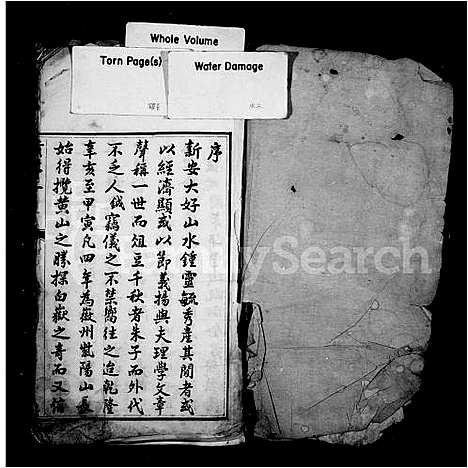 Whole Volume
Torn Page(s)
Water Damage
序
新安大好山水鍾靈毓秀產其間者或
以經濟顯或以節義揚與夫理學文章
聲稱一世而俎豆千秋者朱子而外代
不乏人余竊儀之不禁嚮往之迨乾隆
辛亥至甲寅凡四年為徽州紫陽山長
始得攬黃山之勝探白嶽之奇而又
FamilySearch